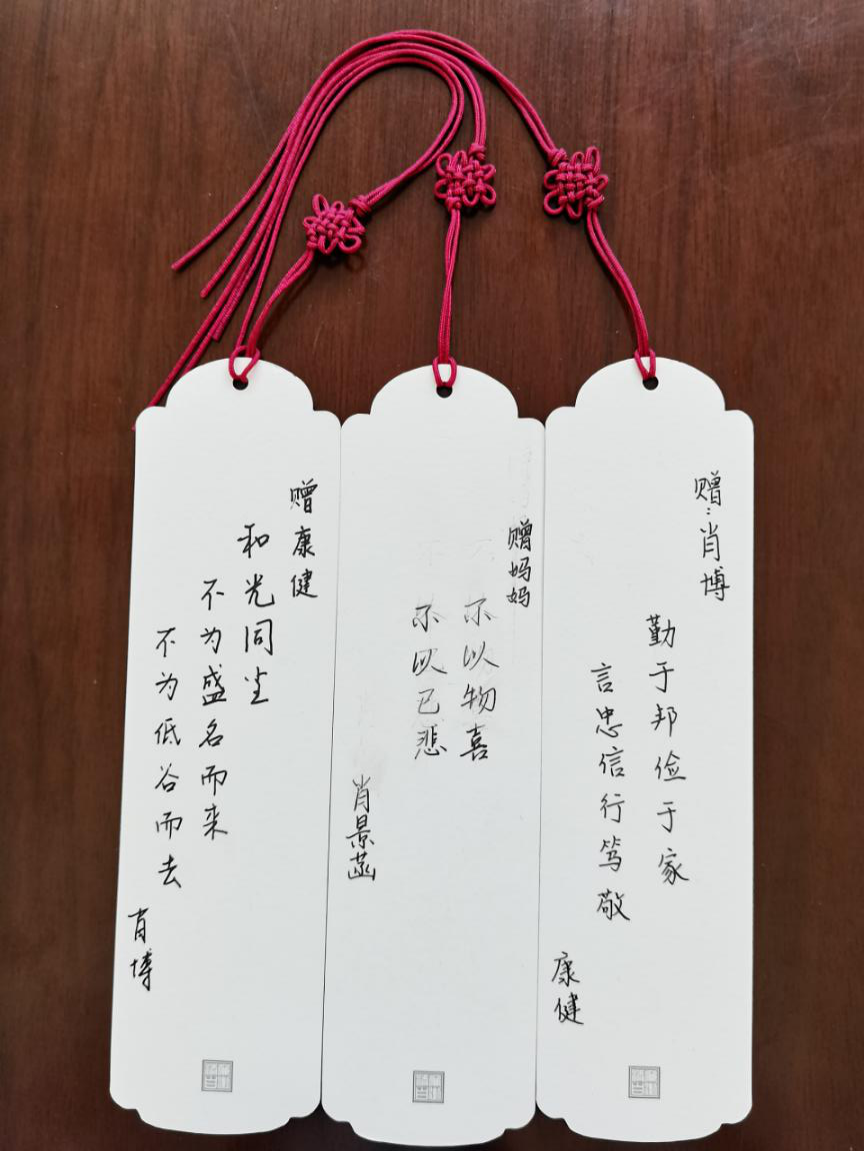 赠:肖博
勤于邦俭于家
言忠信行笃敬
康健
赠妈妈
不以物喜
不以已悲
肖景菡
赠康健
和光同尘
不为盛名而来
不为低谷而去
肖博